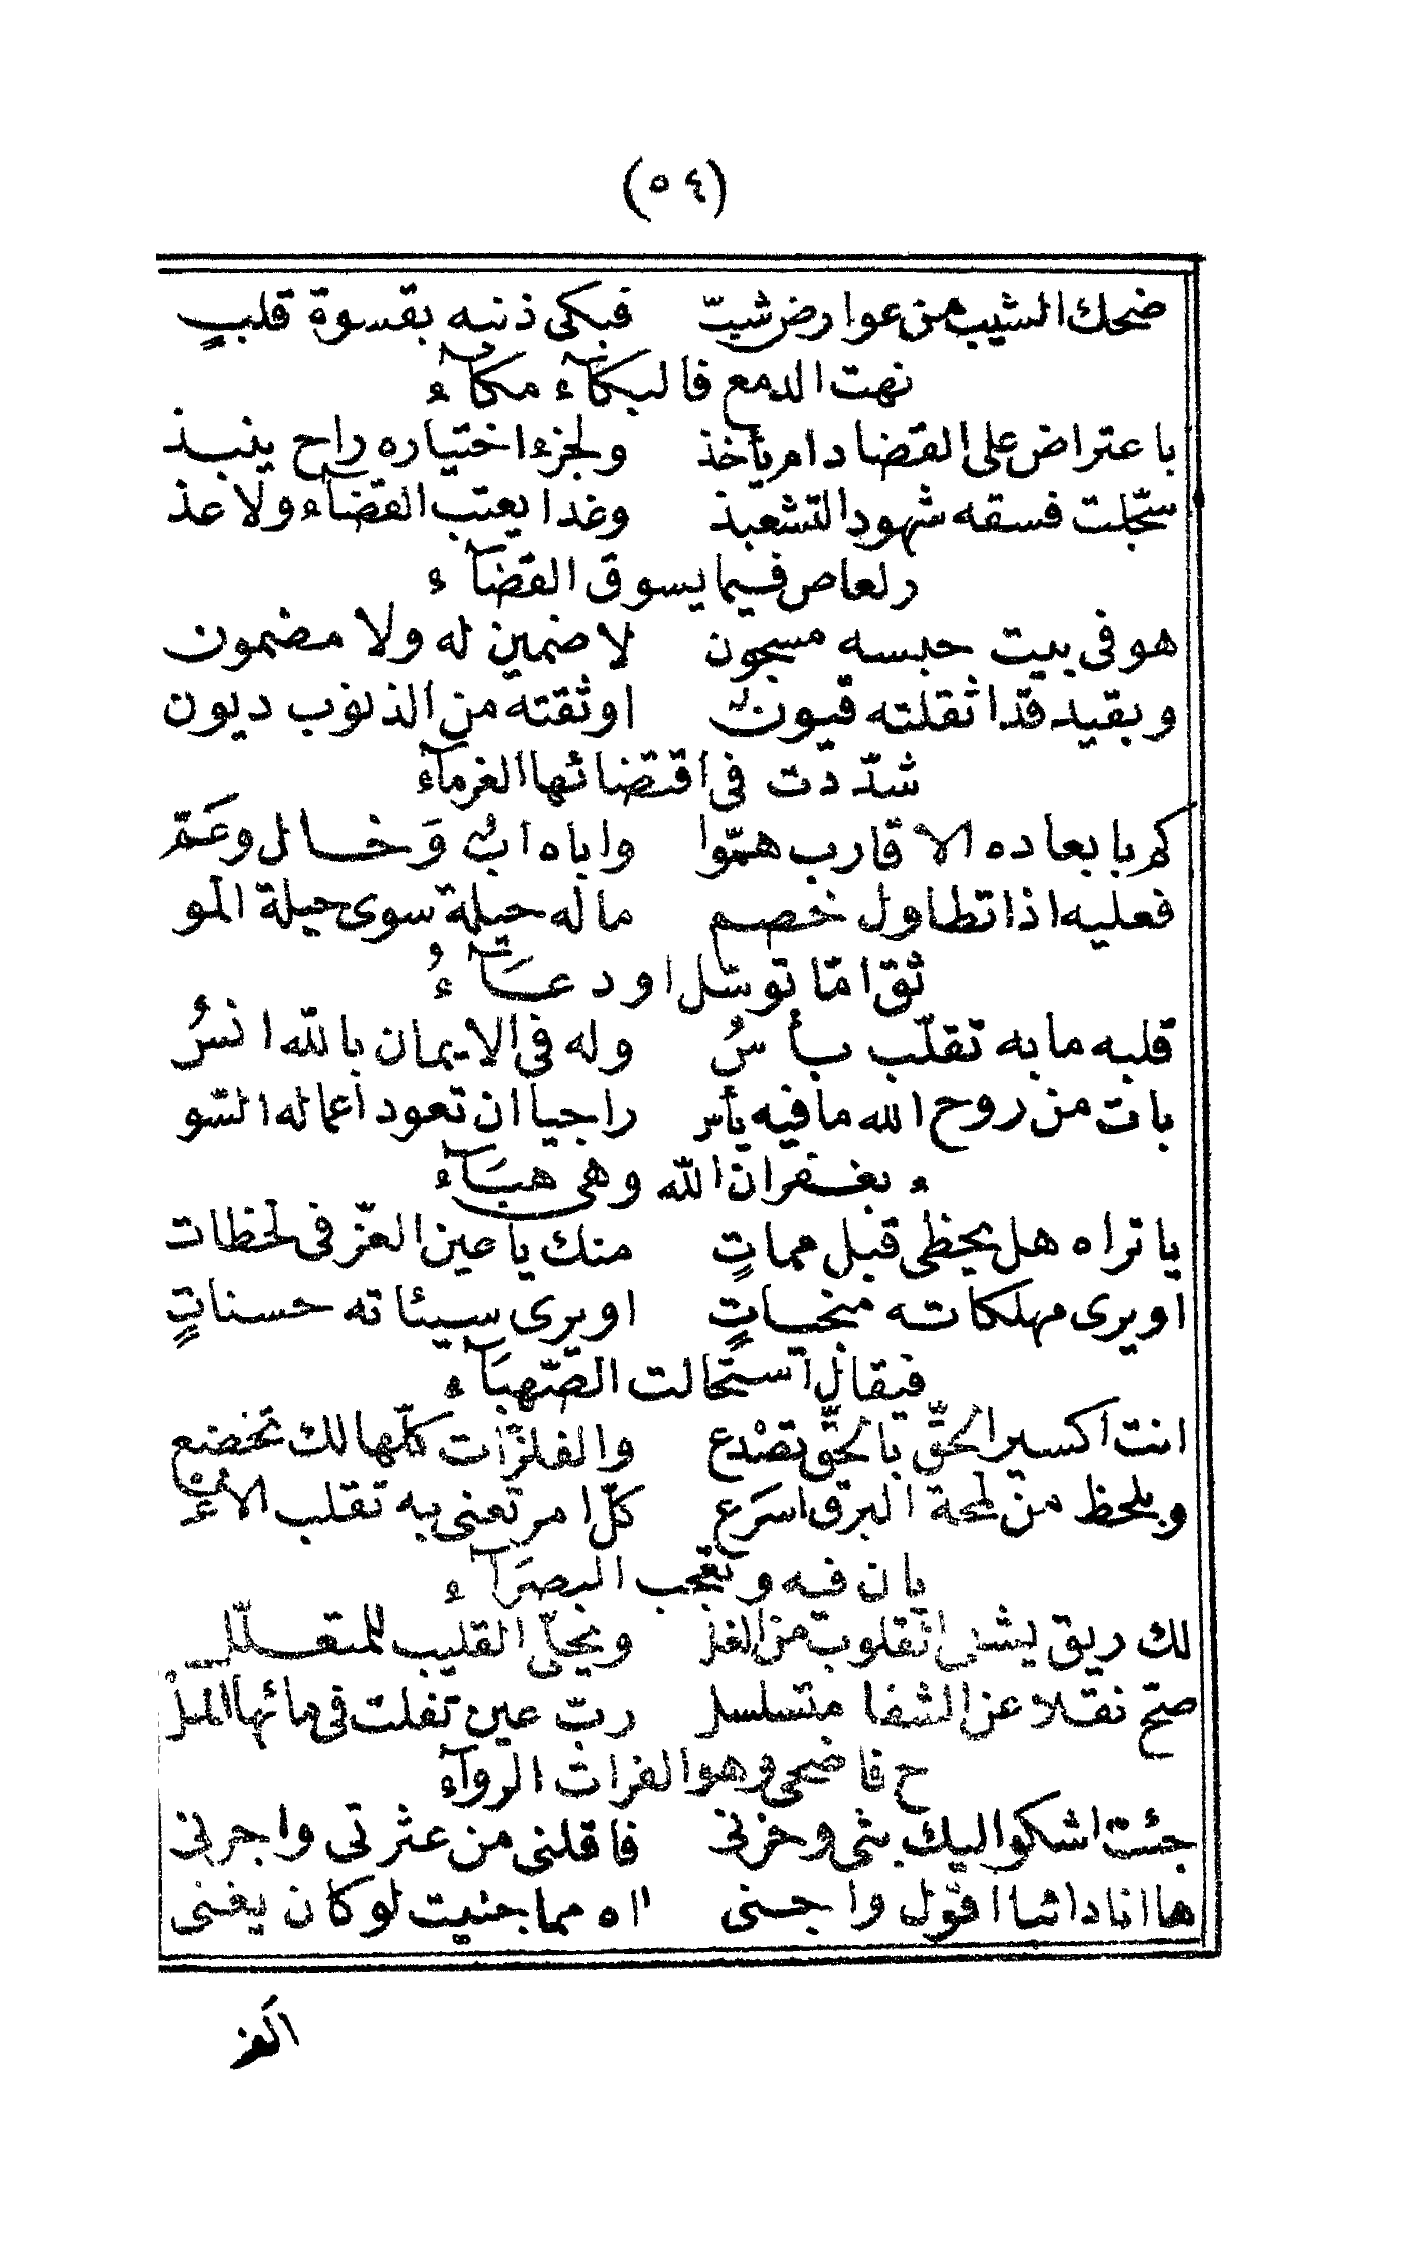 (٥٤)
ضحك الشيب من عوارض شيبّ فبكى ذنبه بقسوة قلبٍ
نهت الدمع فالبكآء مكآء
باعتراض على القضا دام يأخذ ولجزء اختياره راح ينبذ
سجّلت فسقه شهود التشعبذ وغدا يعتب القضآء ولا عذ
ر لعاص فيما يسوق القضآء
هو فى بيت حبسه مسجون لا ضمين له ولا مضمون
وبقيد قد اثقلته قيون اوثقته من الذنوب ديون
شدّدت فى اقتضائها الغرمآء
كم بابعاده الاقارب همّوا واباه ابٌ وَخال وعَمّ
فعليه اذا تطاول خصم ماله حيلة سوى حيلة المو
ثق امّا توسّل او دعَآءُ
قلبه ما به تقلّب بأسُ وله فى الايمان بالله انسُ
بات من روح الله ما فيه يأس راجيا ان تعود اعماله السّو
ء بغفران الله وهى هبَآء
يا تراه هل يحظى قبل مماتٍ منك يا عين العزّ فى لحظات
او يرى مهلكاته منجياتٍ او يرى سيئاته حسناتٍ
فيقال استحالت الصّهبَآء
انت اكسير الحقّ بالحقّ تصْدع والفلزّات كلّها لك تخضع
وبلحظ من لمحة البرق اسرَع كلّ امر تعنى به تقلب الأعْ
يان فيه وتعجب البصرَآء
لك ريق يشفى القلوب من الغلّ ويجلّى القليب للمتعلّل
صحّ نقلا عن الشفا متسلسل ربّ عين تفلت فى مائها المل
ح فاضحى وهو الفرات الروآء
جئت اشكو اليك بثى وحزنى فاقلنى من عثرتى واجرنى
ها انا داثبا اقول واجنى اه مما جنيت لو كان يغنى
الغر